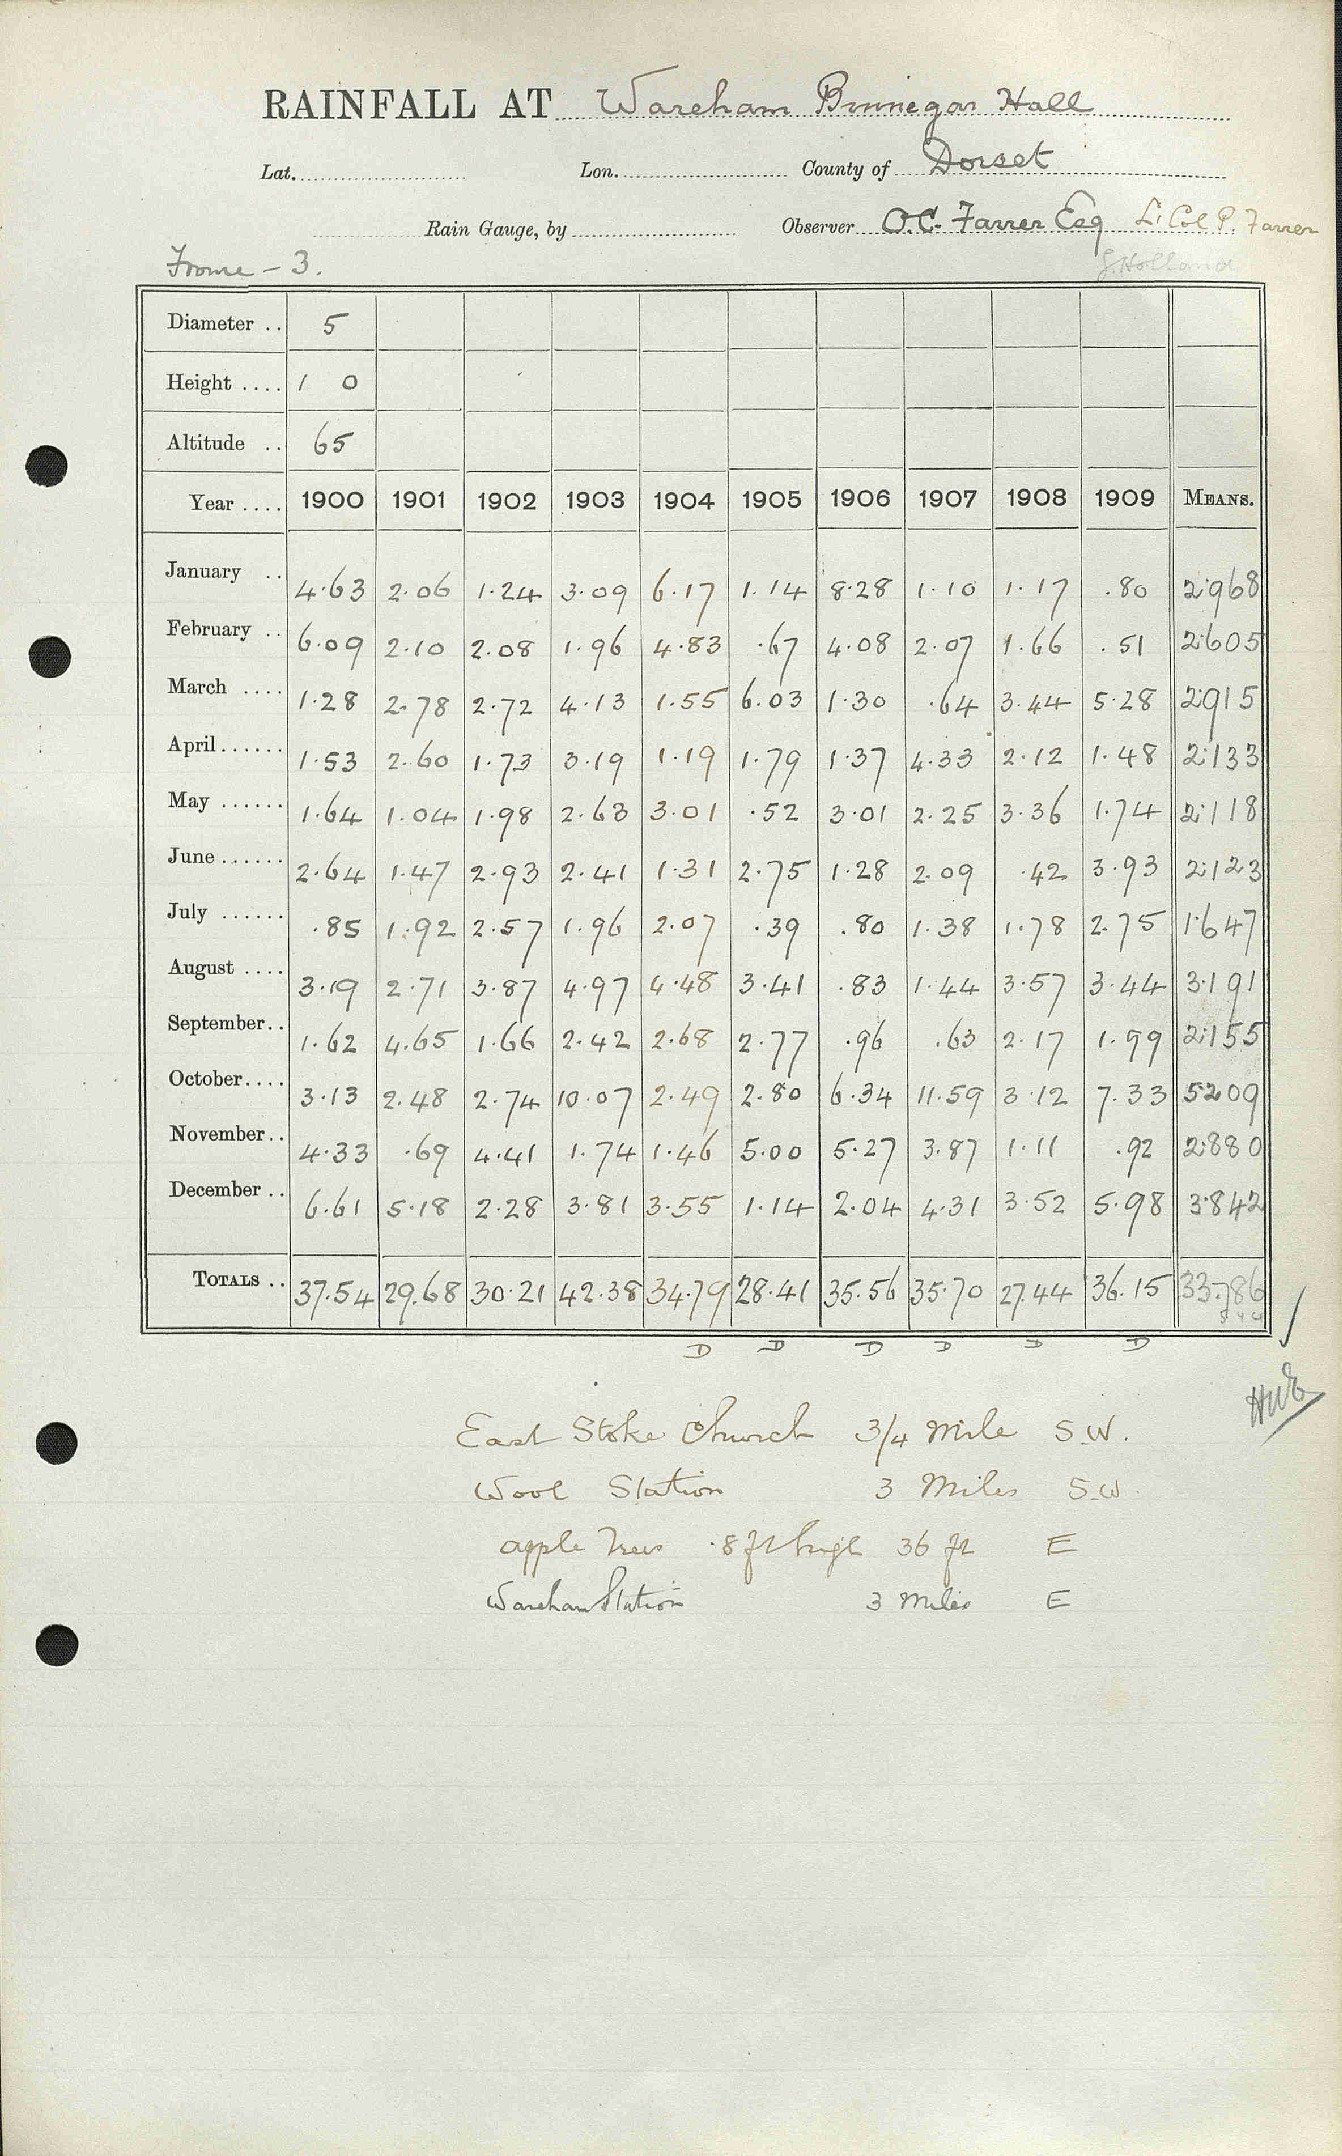 RAINFALL AT Wareham Binnegar Hall
Lat. Lon. County of Dorset
Rain Gauge, by Observer O.C. Farrer Esq Lt Col P. Farrer
Frome - 3. J. Holland
Diameter .. 5
Height .... 1 0
Altitude .. 65
Year .... 1900 1901 1902 1903 1904 1905 1906 1907 1908 1909 MEANS.
January .. 4.63 2.06 1.24 3.09 6.17 1.14 8.28 1.10 1.17 .80 2.968
February .. 6.09 2.10 2.08 1.96 4.83 .67 4.08 2.07 1.66 .51 2.605
March .... 1.28 2.78 2.72 4.13 1.55 6.03 1.30 .64 3.44 5.28 2.915
April...... 1.53 2.60 1.73 3.19 1.19 1.79 1.37 4.33 2.12 1.48 2.133
May ...... 1.64 1.04 1.98 2.63 3.01 .52 3.01 2.25 3.36 1.74 2.118
June ...... 2.64 1.47 2.93 2.41 1.31 2.75 1.28 2.09 .42 3.93 2.123
July ...... .85 1.92 2.57 1.96 2.07 .39 .80 1.38 1.78 2.75 1.647
August .... 3.19 2.71 3.87 4.97 4.48 3.41 .83 1.44 3.57 3.44 3.191
September.. 1.62 4.65 1.66 2.42 2.68 2.77 .96 .63 2.17 1.99 2.155
October.... 3.13 2.48 2.74 10.07 2.49 2.80 6.34 11.59 3.12 7.33 5209
November.. 4.33 .69 4.41 1.74 1.46 5.00 5.27 3.87 1.11 .92 2.880
December .. 6.61 5.18 2.28 3.81 3.55 1.14 2.04 4.31 3.52 5.98 3.842
TOTALS .. 37.54 29.68 30.21 42.38 34.79 28.41 35.56 35.70 27.44 36.15 33.786
D D D D D D
East Stoke Church 3/4 Mile S.W.
Wool Station 3 Miles S.W.
apple trees 8 ft high 36 ft E
Wareham Station 3 Miles E